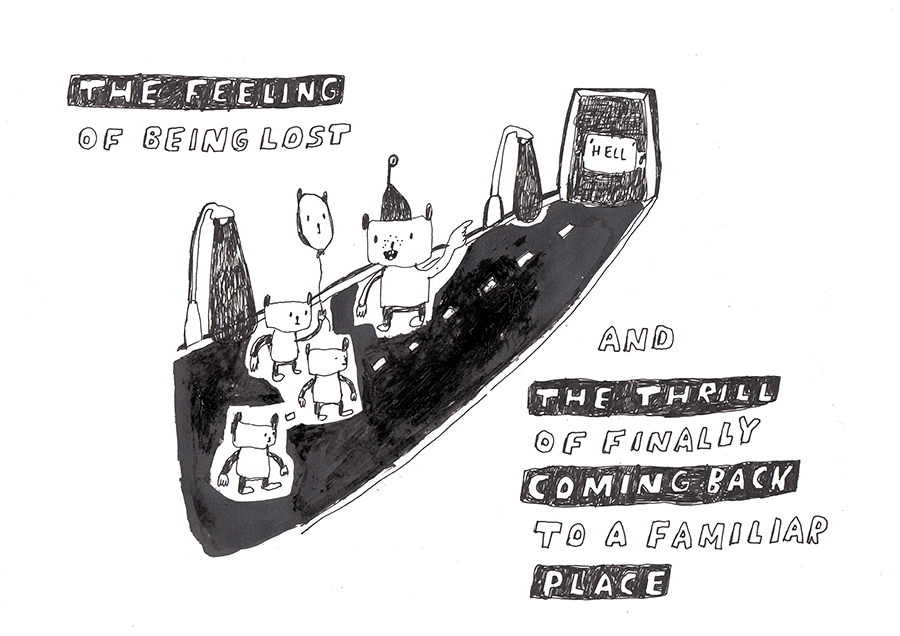 THE FEELING
OF BEING LOST
HELL
AND
THE THRILL
OF FINALLY
COMING BACK
TO A FAMILIAR
PLACE